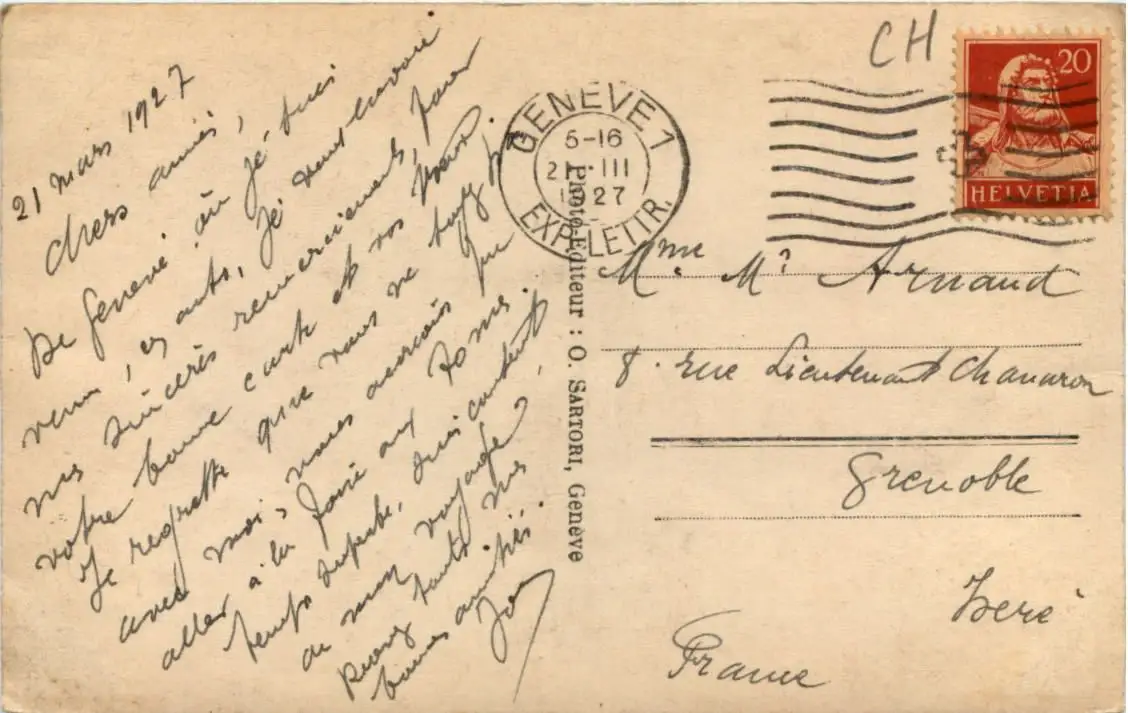 21 Mars 1927
Chers amis,
De Genève où je suis
venu, en auto, je veux envoie
mes sincères remerciements, pour
votre bonne carte et vos vœux.
Je regrette que vous ne soyez pas
avec moi, nous aurions pu
aller à la foire aux
temps superbe, suis content
de mon voyage,
Recevez toutes mes
bonnes amitiés.
Jo
CH
20
HELVETIA
GENÈVE 1
EXP. LETTR.
6-16
III
1927
Photo-Editeur : O. SARTORI, Genève
Mme Mr Arnaud
8. rue Lieutenant Chanaron
Grenoble
Isère
France